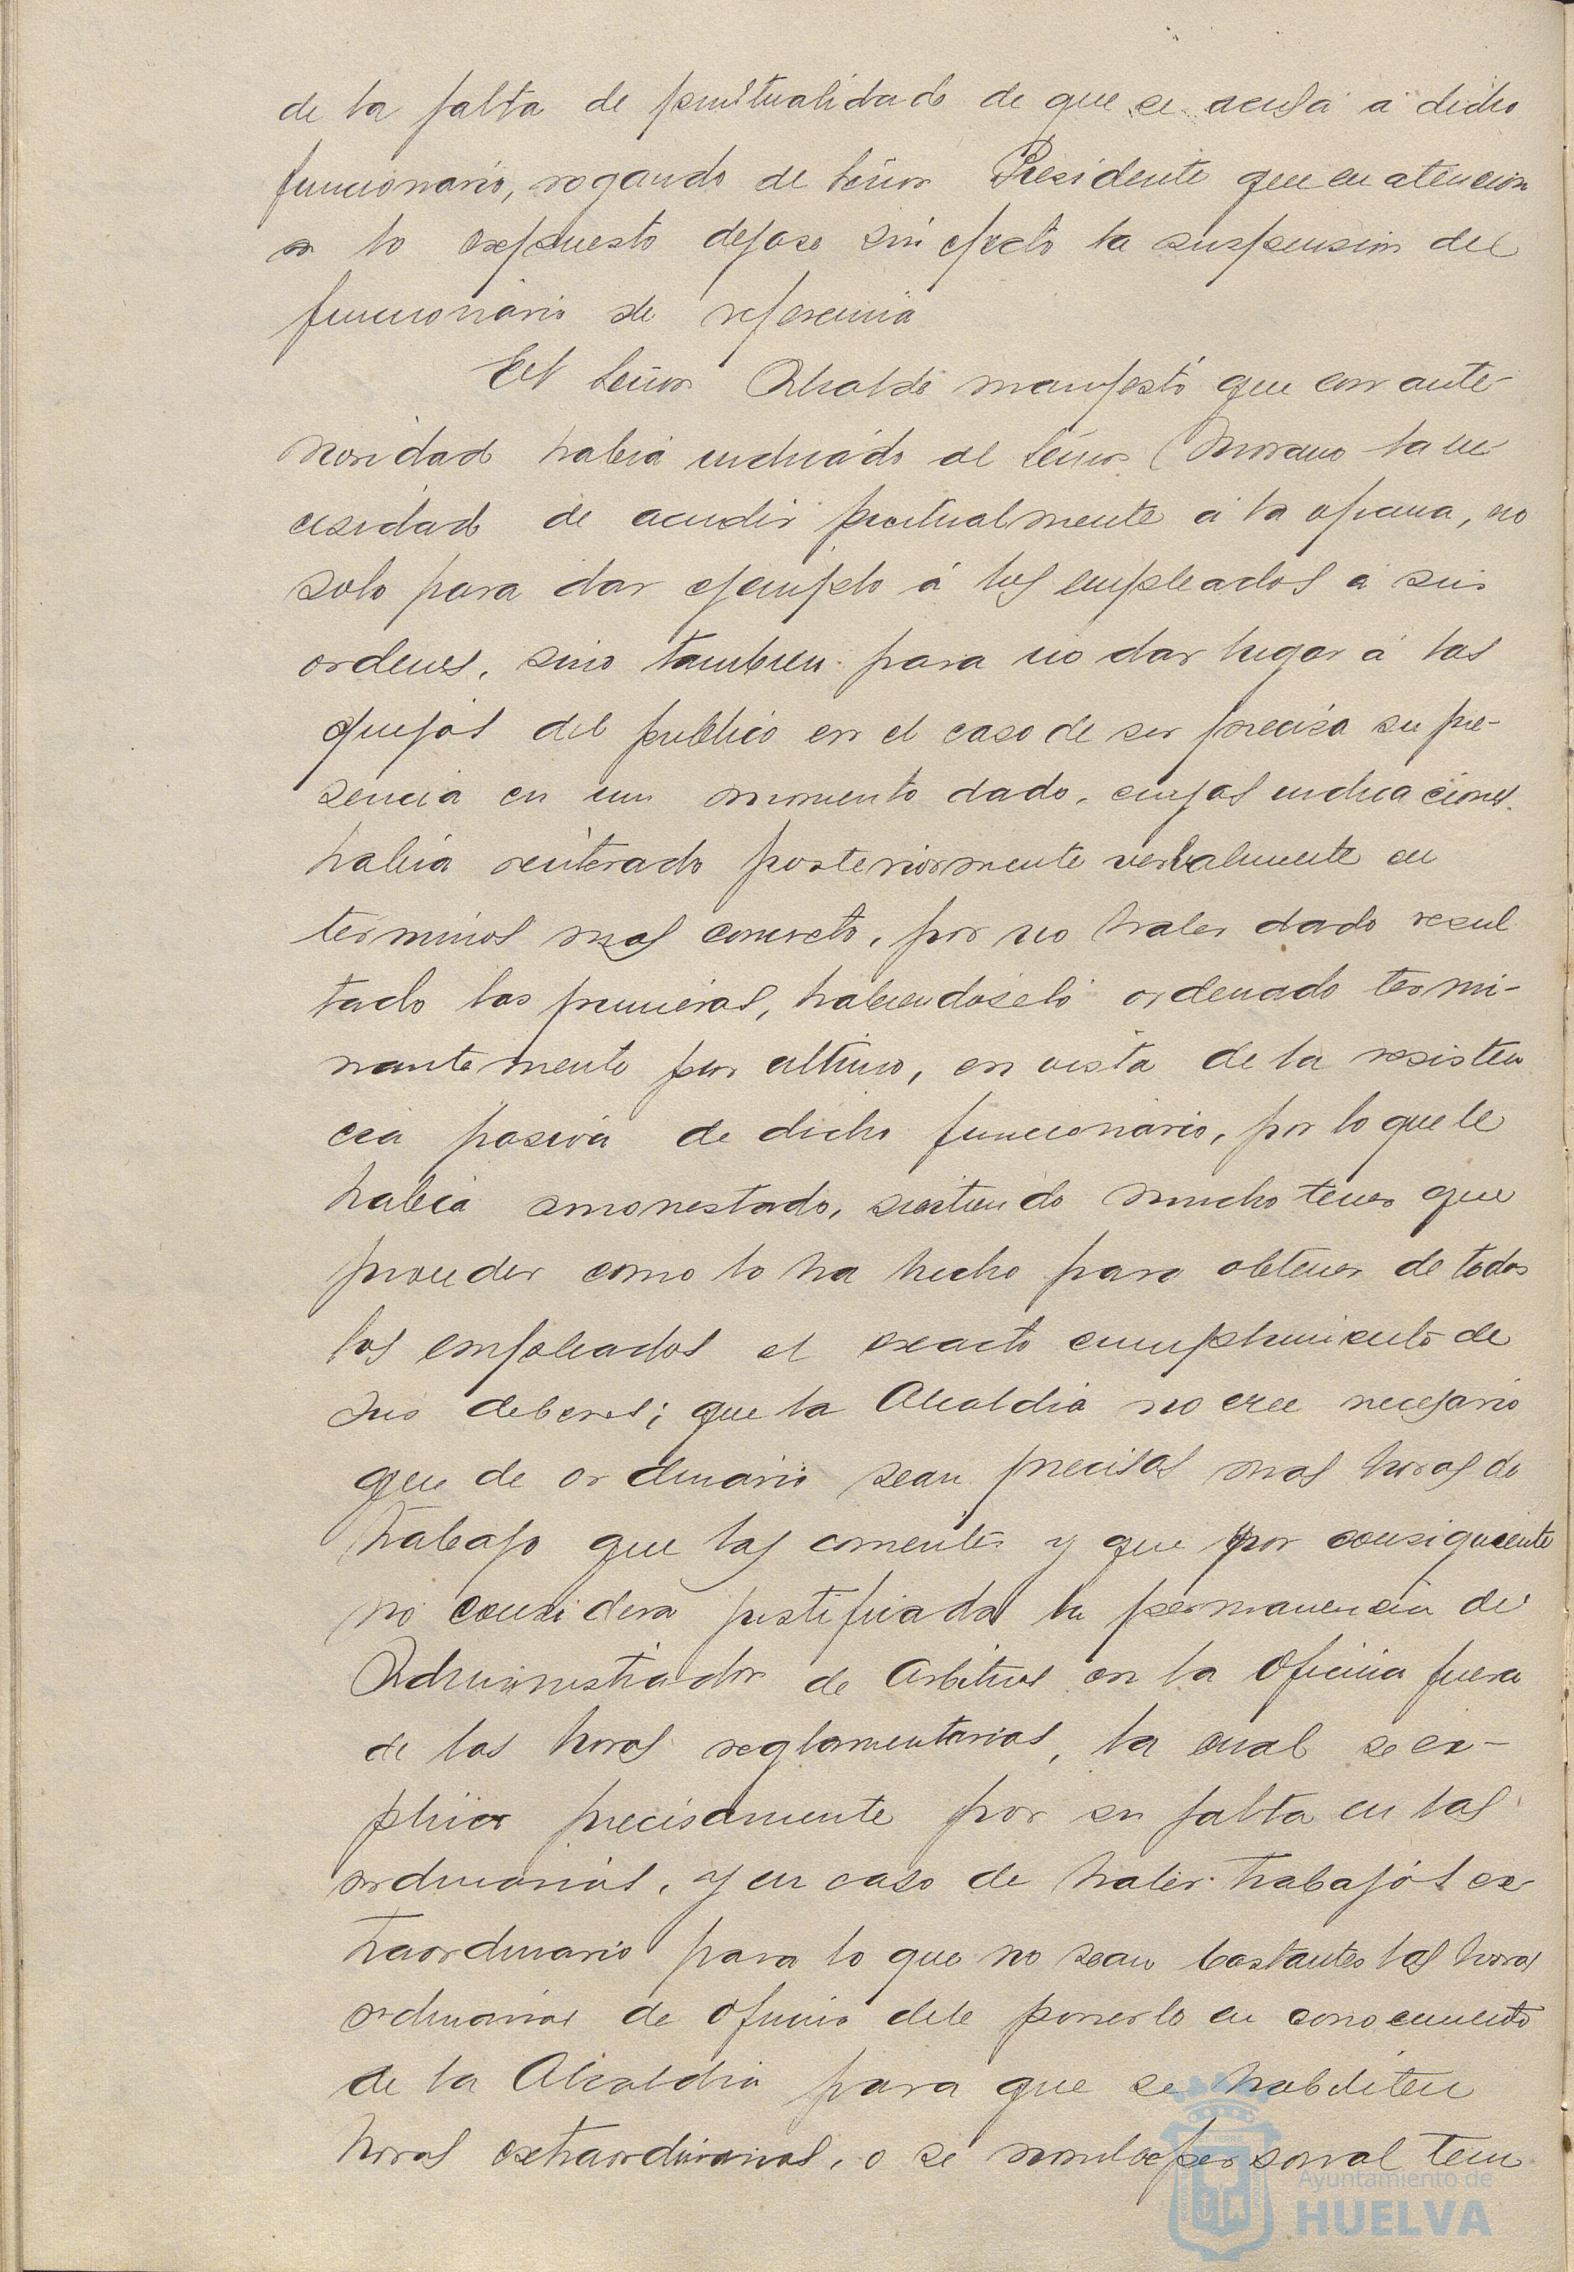 de la falta de puntualidad de que se acusa á dicho
funcionario, rogando de Señor Presidente que en atencion
a lo expuesto dejase sin efecto la suspension del
funcionario de referencia
El Señor Alcalde manifestó que con ante-
rioridad habia indicado al Señor Moreno la ne
cesidad de acudir puntualmente á la oficina, no
solo para dar ejemplo á los empleados á sus
ordenes, sino tambien para no dar lugar á las
quejas del publico en el caso de ser precisa su pre-
sencia en un momento dado, cuyas indicaciones
habia reiterado posteriormente verbalmente en
terminos mas concreto, por no haber dado resul
tado las primeras, habiendoselo ordenado termi-
nantemente por ultimo, en vista de la resisten
cia pasiva de dicho funcionario, por lo que le
habia amonestado, sintiendo mucho tener que
proceder como lo ha hecho para obtener de todos
los empleados el exacto cumplimiento de
sus deberes; que la Alcaldia no cree necesario
que de ordinario sean precisas mas horas de
trabajo que las corrientes y que por consiguiente
no considera justificada la permanencia del
Administrador de Arbitrios en la Oficina fuera
de las horas reglamentarias, la cual se ex-
plica precisamente por su falta en las
ordinarias, y en caso de haber trabajos ex
traordinario para lo que no sean bastantes las horas
ordinarias de oficina debe ponerlo en conocimiento
de la Alcaldia para que se habiliten
horas extraordinarias, o se nombre personal tem
Ayuntamiento de
HUELVA